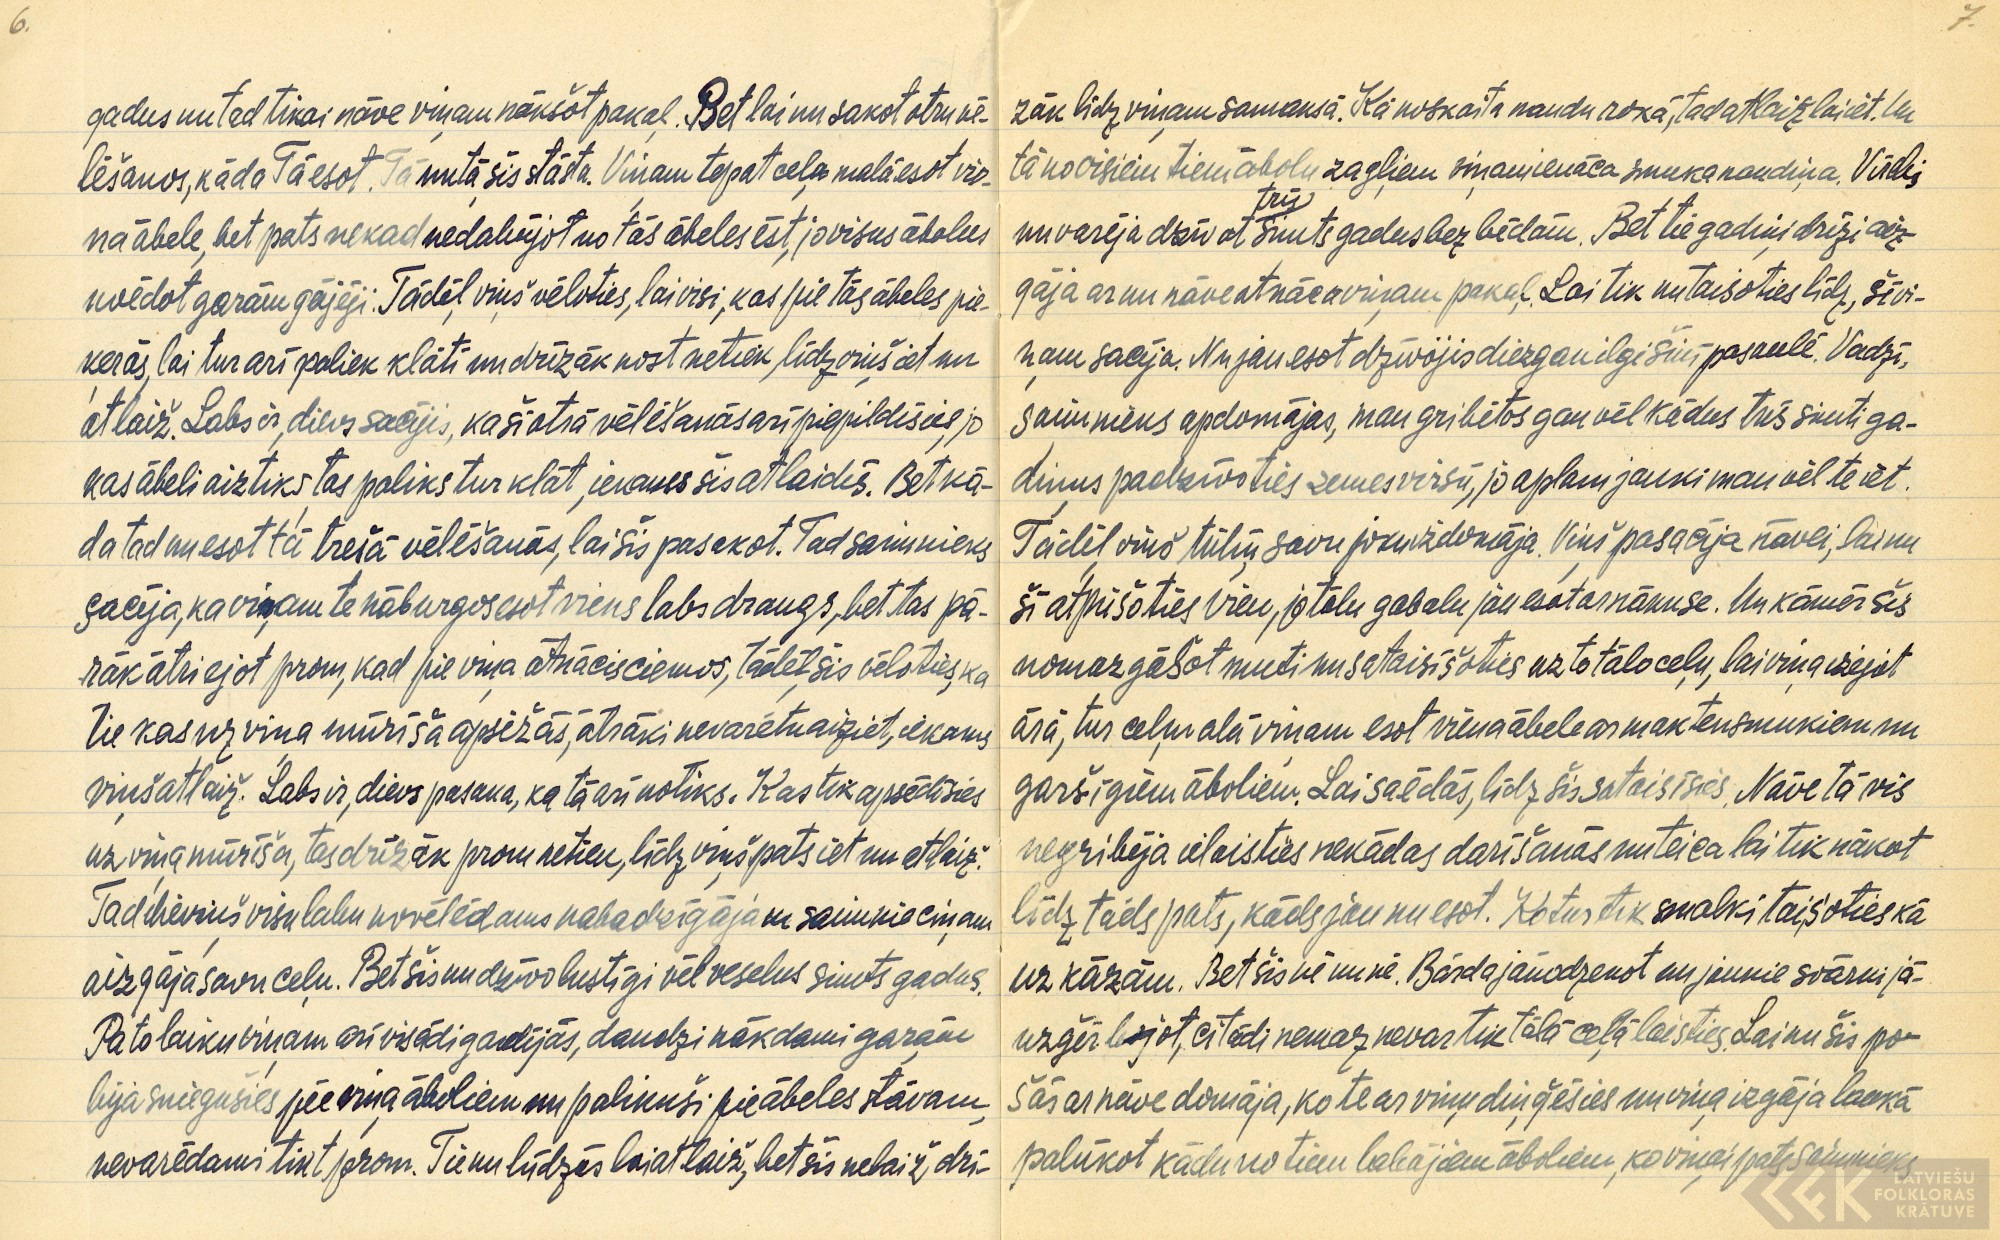 6.
gadus nu tad tikai nāve viņam nākšot pakaļ. Bet lai nu sakot otru vē-
lēšanos, kāda Tā esot. Tā nu tā šis stāsta. Viņam tepat ceļa malā esot vie-
na ābele, bet pats nekad nedabūjot no tās ābeles ēst, jo visus ābolus
noēdot garām gājēji. Tādēļ viņš vēloties, lai visi, kas pie tās ābeles pie-
ķerās, lai tur arī paliek klāti un drīzāk nost netiek, līdz viņš iet un
atlaiž. Labs ir, dievs sacījis, ka šī otrā vēlēšanās arī piepildīsies, jo
kas ābeli aiztiks, tas paliks tur klāt, iekams šis atlaidīs. Bet kā-
da tad nu esot tā trešā vēlēšanās, lai šis pasakot. Tad saimnieks
sacīja, ka viņam te nāburgos esot viens labs draugs, bet tas pā-
rāk ātri ejot prom, kad pie viņa atnācis ciemos, tādēļ šis vēloties, ka
tie kas uz viņa mūrīša apsēžās, ātrāki nevarētu aiziet, iekams
viņš atlaiž. Labs ir, dievs pasaka, ka tā arī notiks. Kas tik apsēdīsies
uz viņa mūrīša, tas drīzāk prom netiek, līdz viņš pats iet un atlaiž.
Tad dieviņš visu labu novēlēdams nabadzīgajam saimnieciņam
aizgāja savu ceļu. Bet šis nu dzīvo lustīgi vēl veselus simts gadus.
Pa to laiku viņam arī visādi gadījās, daudzi nākdami garām
bija sniegušies pēc viņa āboliem un palikuši pie ābeles stāvam,
nevarēdami tikt prom. Tie nu lūdzās lai atlaiž, bet šis nelaiž drī-
7.
zāk līdz viņam samaksā. Kā noskaita naudu rokā, tad atlaiž lai iet. Un
tā no visiem tiem ābolu zagļiem viņam ienāca smuka naudiņa. Vīriņš
trīs
nu varēja dzīvot simts gadus bez bēdām. Bet tie gadiņi drīzi aiz-
gāja ar nu nāve atnāca viņam pakaļ. Lai tik nu taisoties līdz, šī vi-
ņam sacīja. Nu jau esot dzīvojis diezgan ilgi šinī pasaulē. Vadzi,
saimnieks apdomājas, man gribētos gan vēl kādus trīs simti ga-
diņus padzīvoties zemes virsū, jo aplam jauki man vēl te iet.
Tādēļ viņš tūliņ savu joku izdomāja. Viņš pasacīja nāvei, lai nu
šī atpūšoties vien, jo tālu gabalu jau esot arnākuse. Un kāmēr šis
nomazgāšot muti un sataisīšoties uz to tālo ceļu, lai viņa izejot
ārā, tur ceļmalā viņam esot viena ābele ar makten smukiem un
garšīgiem āboliem. Lai saēdās, līdz šis sataisīsies. Nāve tā vis
negribēja ielaisties nekādās darīšanās un teica lai tik nākot
līdz tāds pats, kāds jau nu esot. Ko tur tik smalki taisoties kā
uz kāzām. Bet šis nē un nē. Bārda janodzenot un jaunie svārki jā-
uzģērbjot, citādi nemaz nevar tik tālā ceļā laisties. Lai nu šis po-
šās ar nāve domāja, ko te ar viņu diņģēsies un viņa izgāja laukā
palūkot kādu no tiem labajiem āboliem, ko viņai pats saimnieks
LATVIEŠU
FOLKLORAS
KRĀTUVE